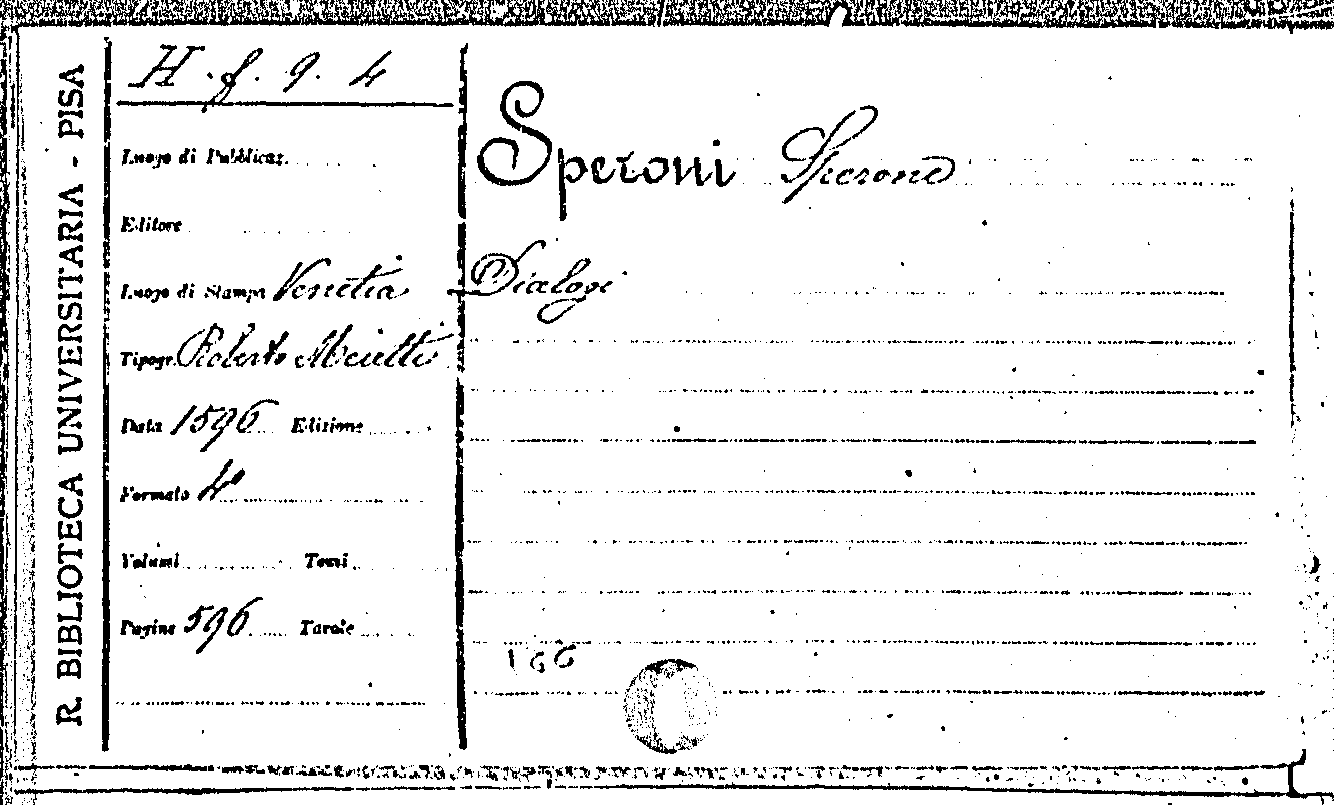 R. BIBLIOTECA UNIVERSITARIA - PISA
H. f. 9. 4
Luogo di Pubblicaz.
Editore
Luogo di Stampa Venetia
Tipogr. Roberto Meietti
Data 1596 Edizione
Formato 4°
Volumi Tomi
Pagine 596 Tavole
Speroni Sperone
Dialogi
166